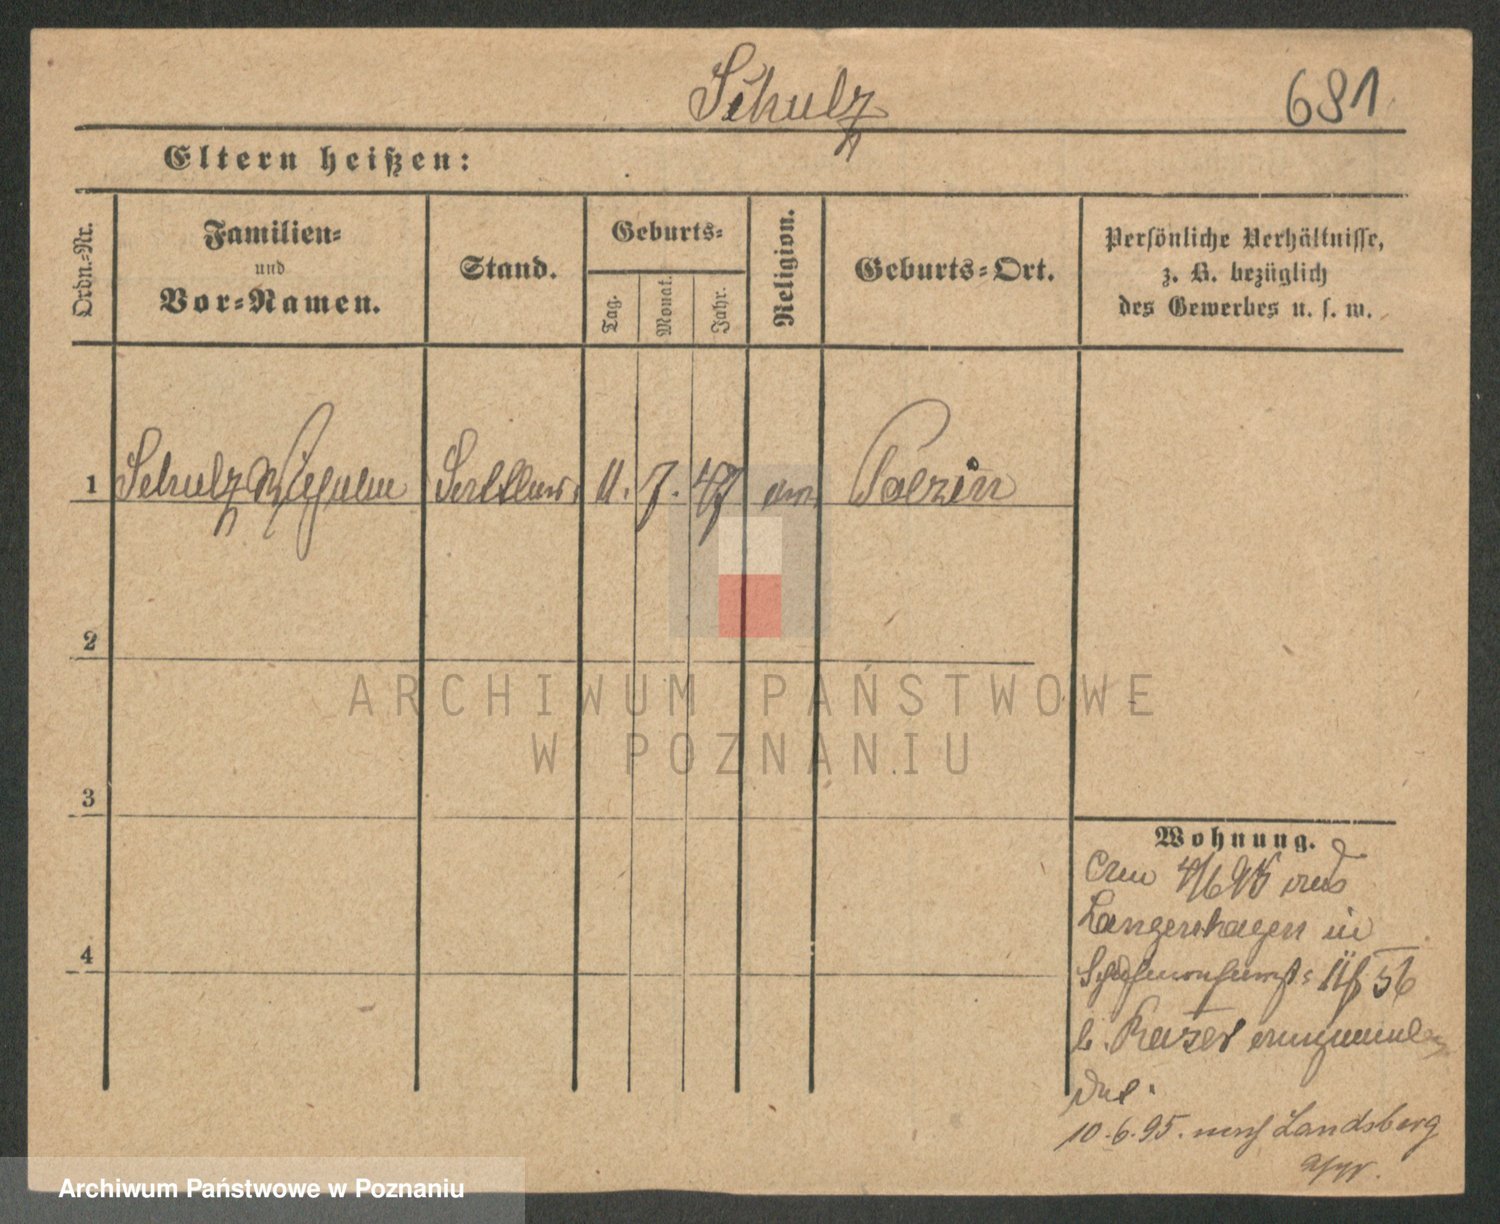 Schulz 681
Eltern heißen:
Ordn.-Nr.
Familien-
und
Vor-Namen.
Stand.
Geburts-
Tag.
Monat.
Jahr.
Religion.
Geburts-Ort.
Persönliche Verhältnisse,
z. B. bezüglich
des Gewerbes u. s. w.
1 Schulz Wilhelm Sattler 11. 7. 47 Polzin
2
3
4
Wohnung.
4/6 95 aus
Langenhagen in
56
b.
10.6.95. nach Landsberg
ARCHIWUM PAŃSTWOWE
W POZNANIU
Archiwum Państwowe w Poznaniu